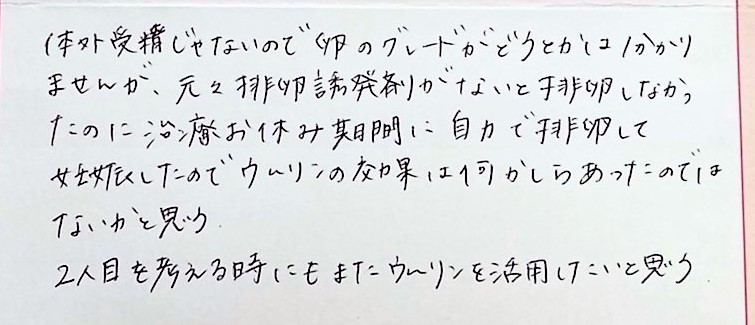 体外受精じゃないので卵のグレードがどうとかは分かり
ませんが、元々排卵誘発剤がないと排卵しなかっ
たのに治療お休み期間に自力で排卵して
妊娠したのでウムリンの効果は何かしらあったのでは
ないかと思う
2人目を考える時にもまたウムリンを活用したいと思う